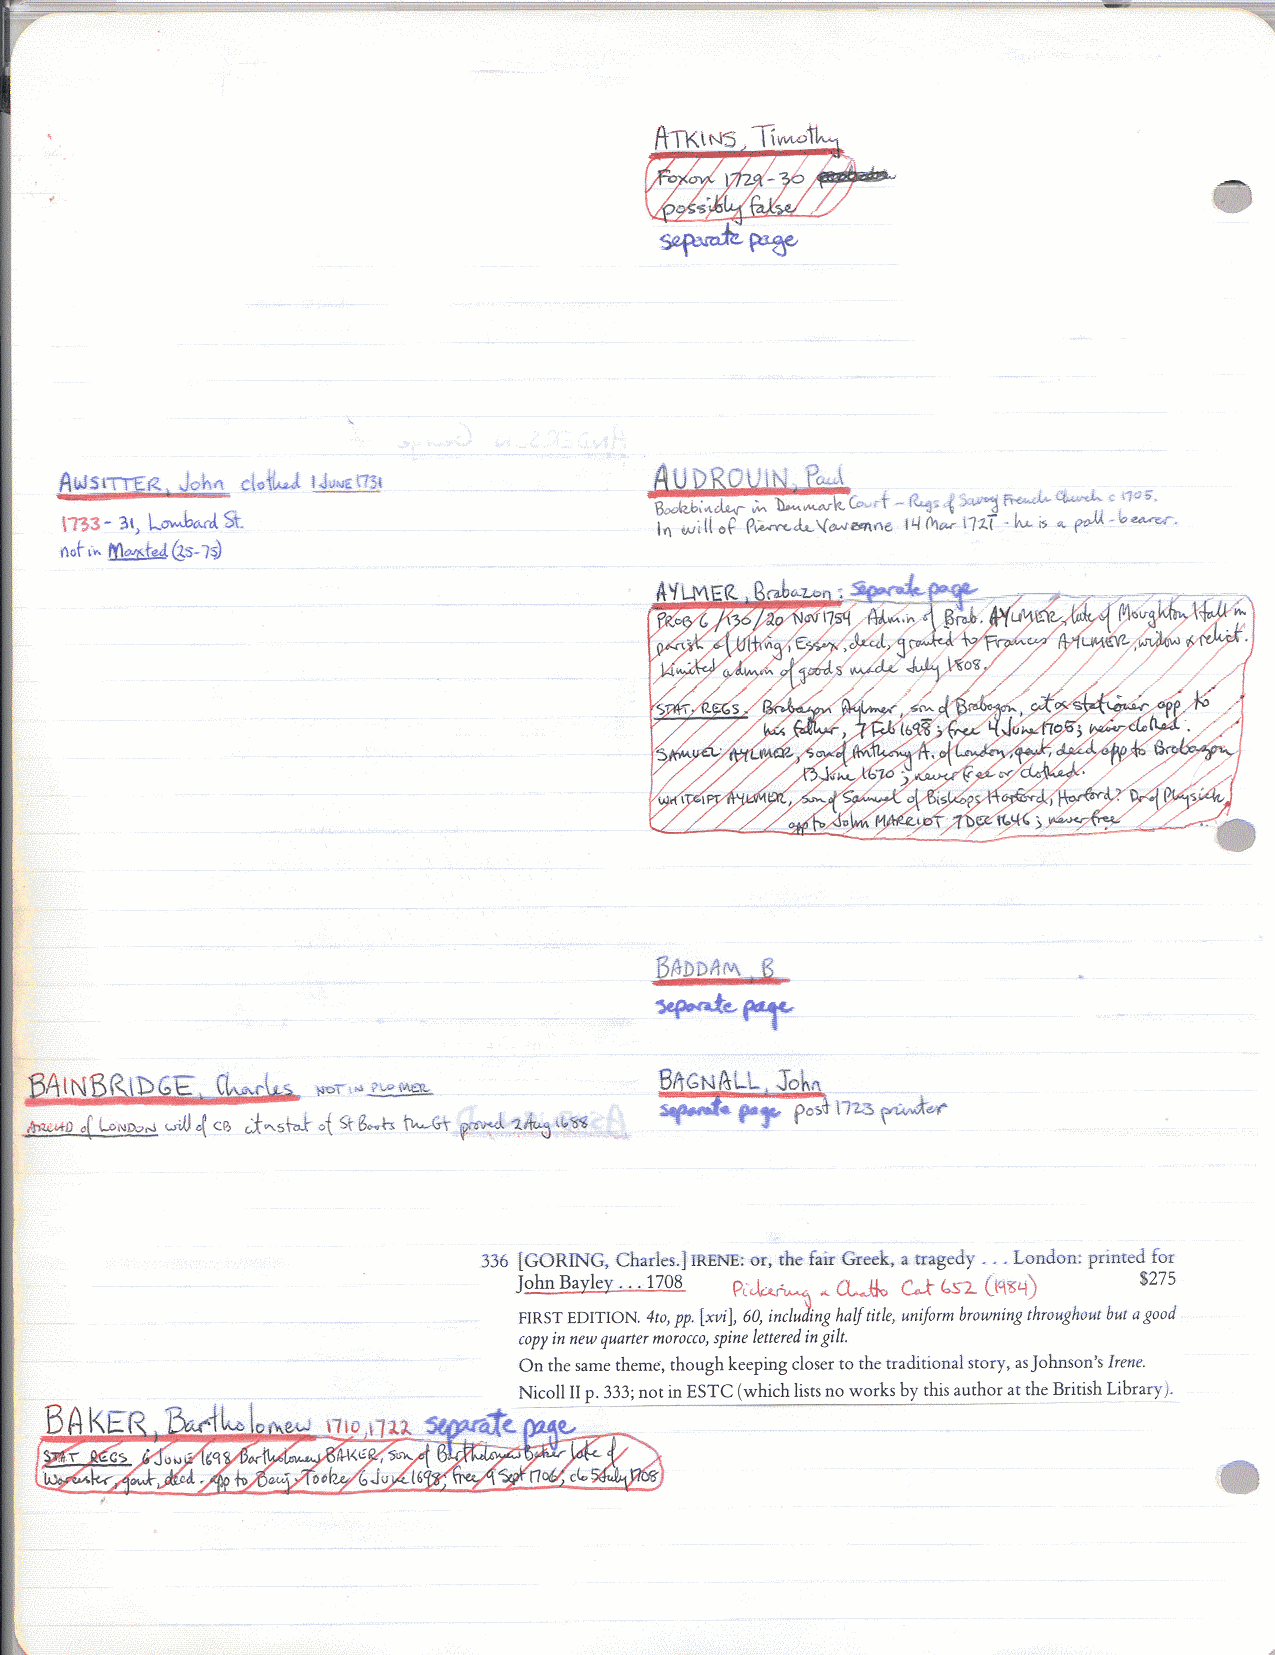 ATKINS, Timothy
Foxon 1729-30
possibly false
separate page
AWSITTER, John clothed 1 JUNE 1731
1733 - 31, Lombard St.
not in Maxted (25-75)
AUDROUIN, Paul
Bookbinder in Denmark Court - Regs of Savoy French Church c 1705.
In will of Pierre de Varenne 14 Mar 1721 - he is a pall-bearer.
AYLMER, Brabazon: separate page
PROB 6/130/20 Nov 1754 Admin of Brab. AYLMER, late of Moughton Hall in
parish of Ulting, Essex, decd, granted to Frances AYLMER, widow & relict.
Limited admin of goods made July 1808.
STAT. REGS. Brabazon Aylmer, son of Brabazon, cit & stationer app to
his father, 7 Feb 1698; free 4 June 1705; never clothed.
SAMUEL AYLMER, son of Anthony A. of London, gent, decd app to Brabazon
13 June 1670; never free or clothed.
WHITGIFT AYLMER, son of Samuel of Bishops Harford, Harford? Dr of Physick,
app to John MARRIOT 7 DEC 1646; never free
BADDAM, B
separate page
BAINBRIDGE, Charles NOT IN PLOMER
ARCHD of LONDON will of CB cit & stat of St Barts the Gt proved 2 Aug 1688
BAGNALL, John
separate page post 1723 printer
336 [GORING, Charles.] IRENE: or, the fair Greek, a tragedy . . . London: printed for
John Bayley . . . 1708 Pickering & Chatto Cat 652 (1984) $275
FIRST EDITION. 4to, pp. [xvi], 60, including half title, uniform browning throughout but a good
copy in new quarter morocco, spine lettered in gilt.
On the same theme, though keeping closer to the traditional story, as Johnson's Irene.
Nicoll II p. 333; not in ESTC (which lists no works by this author at the British Library).
BAKER, Bartholomew 1710, 1722 separate page
STAT REGS 6 JUNE 1698 Bartholomew BAKER, son of Bartholomew Baker late of
Worcester, gent, decd. app to Benj. Tooke 6 June 1698; free 9 Sept 1706; clo 5 July 1708